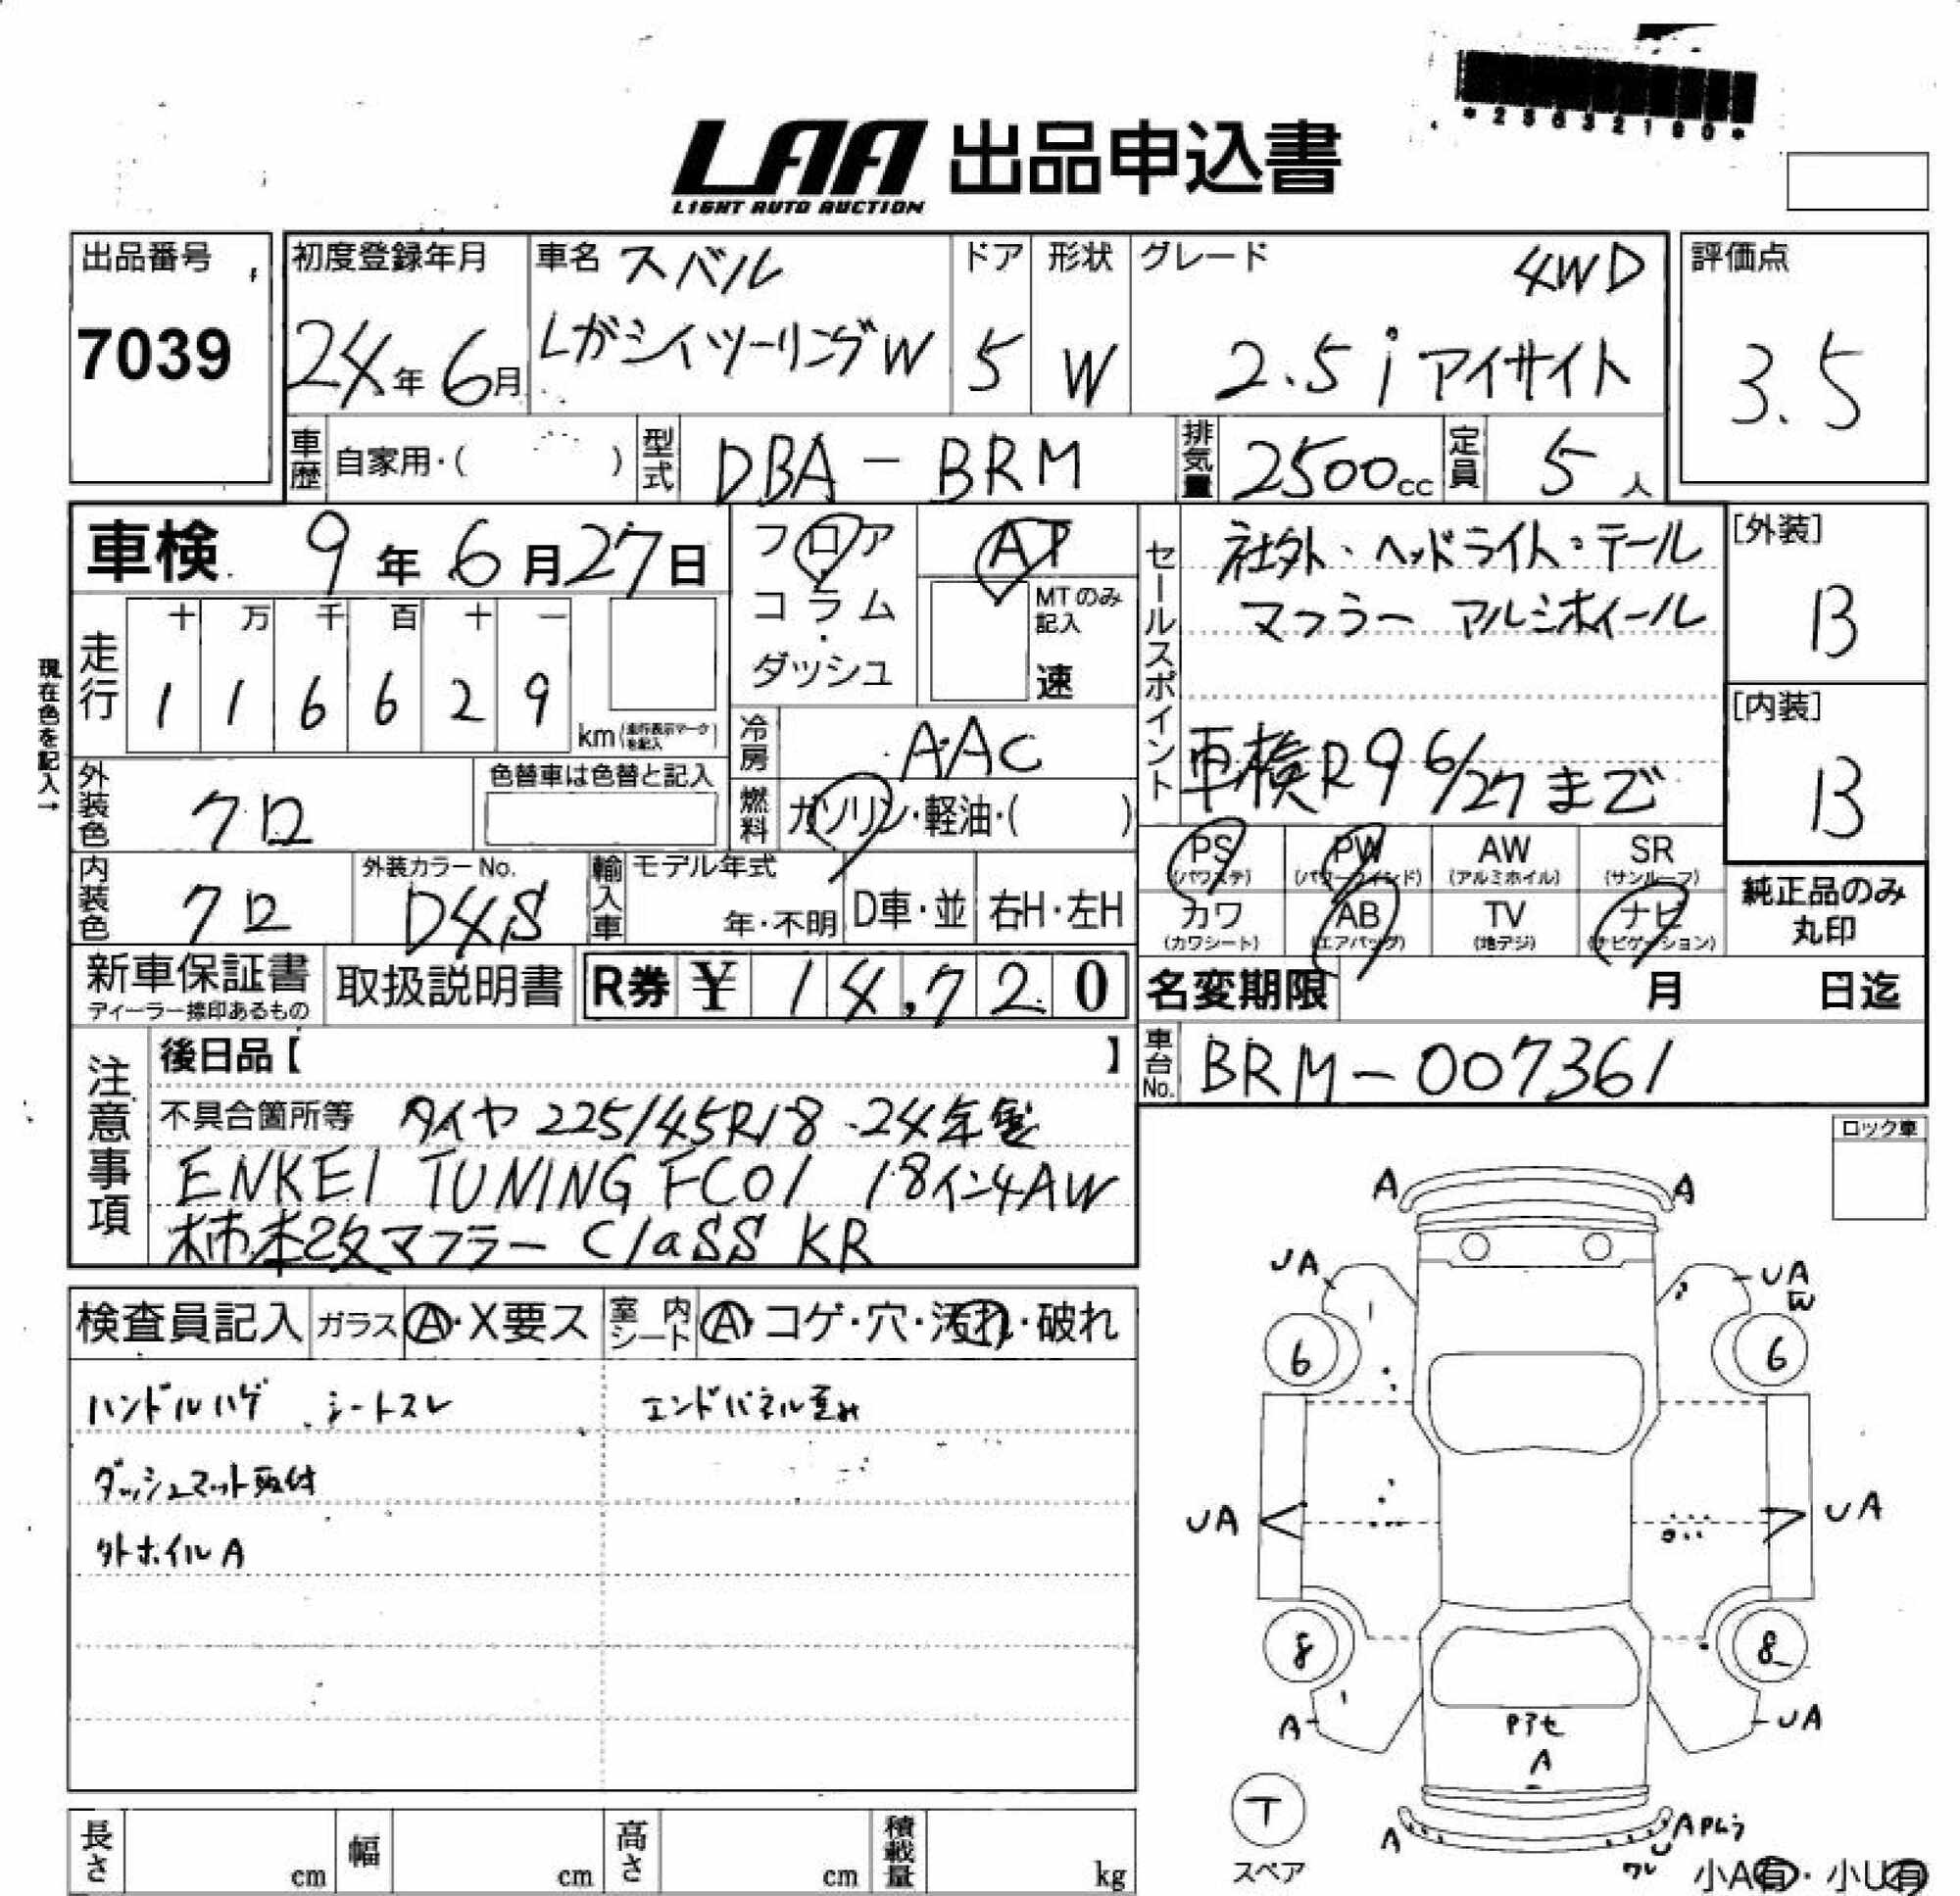 *23632190*
LAA 出品申込書
LIGHT AUTO AUCTION
出品番号
7039
初度登録年月
24年 6月
車名 スバル
レガシイツーリングW
ドア
5
形状
W
グレード 4WD
2.5i アイサイト
評価点
3.5
車歴 自家用・( )
型式 DBA-BRM
排気量 2500cc
定員 5人
車検 9年 6月 27日
フロア
コラム
・
ダッシュ
AT
MTのみ
記入
速
セールスポイント
社外・ヘッドライト・テール
マフラー アルミホイール
車検R9 6/27まで
[外装]
B
[内装]
B
現在色を記入→
走行
十 万 千 百 十 一
1 1 6 6 2 9
km(走行表示マークを記入)
冷房 AAC
燃料 ガソリン・軽油・( )
外装色 クロ
色替車は色替と記入
内装色 クロ
外装カラーNo.
D4S
輸入車
モデル年式
年・不明
D車・並
右H・左H
PS
(パワステ)
PW
(パワーウインド)
AW
(アルミホイル)
SR
(サンルーフ)
カワ
(カワシート)
AB
(エアバッグ)
TV
(地デジ)
ナビ
(ナビゲーション)
純正品のみ
丸印
新車保証書
ディーラー捺印あるもの
取扱説明書
R券 ¥ 14,720
名変期限 月 日迄
車台No. BRM-007361
注意事項
後日品【 】
不具合箇所等 タイヤ 225/45R18 24年製
ENKEI TUNING FC01 18インチAW
柿本改マフラー ClaSS KR
ロック車
検査員記入
ガラス A・X要ス
室内シート A・コゲ・穴・汚れ・破れ
ハンドルハゲ シートスレ エンドパネル歪み
ダッシュマット取付
外ホイルA
A A
UA UA
W
6 6
UA UA
8 8
A UA
Pアセ
A
T
スペア
A A Pムラ
U
ワレ
小A有・小U有
長さ cm
幅 cm
高さ cm
積載量 kg